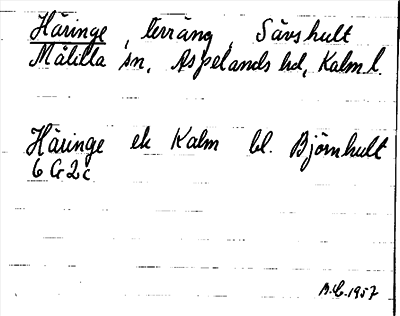 Häringe, terräng, Sävshult
Målilla sn, Aspelands hd, Kalm l.
Häringe ek Kalm bl. Björnhult
6 G 2 c
1957